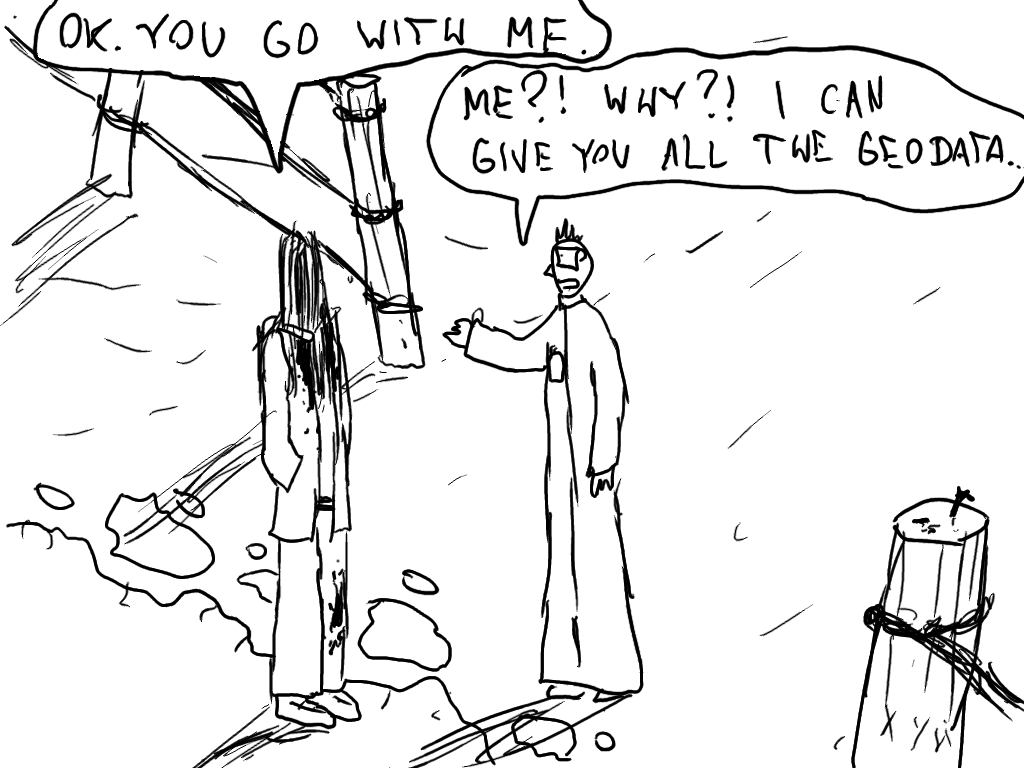 OK. YOU GO WITH ME.
ME?! WHY?! I CAN
GIVE YOU ALL THE GEODATA..